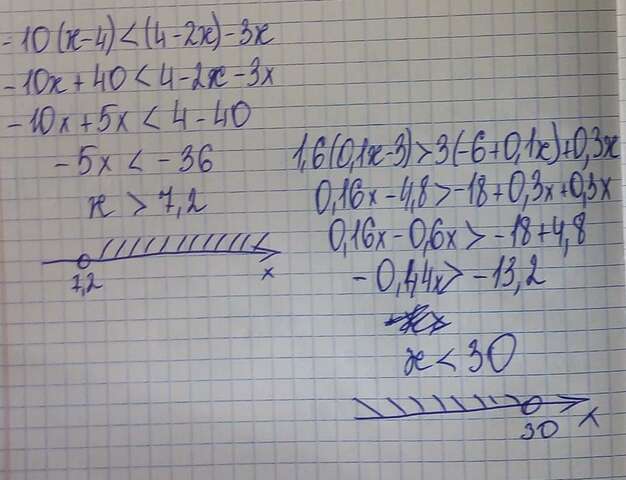 -10(x-4)<(4-2x)-3x
-10x+40<4-2x-3x
-10x+5x<4-40
-5x<-36
x>7,2
7,2
x
1,6(0,1x-3)>3(-6+0,1x)+0,3x
0,16x-4,8>-18+0,3x+0,3x
0,16x-0,6x>-18+4,8
-0,44x>-13,2
x<30
30
x